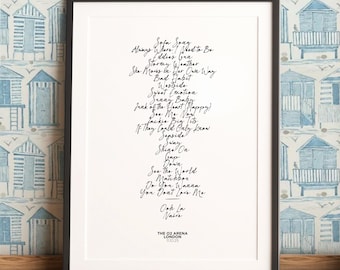 Sofa Song
Always Where I Need to Be
Eddie's Gun
Stormy Weather
She Moves in Her Own Way
Bad Habit
Westside
Sweet Emotion
Sunny Baby
Junk of the Heart (Happy)
See Me Now
Jackie Big Tits
If They Could Only Know
Seaside
Sway
Shine On
Gap
Down
See the World
Matchbox
Do You Wanna
You Don't Love Me
Ooh La
Naive
THE O2 ARENA
LONDON